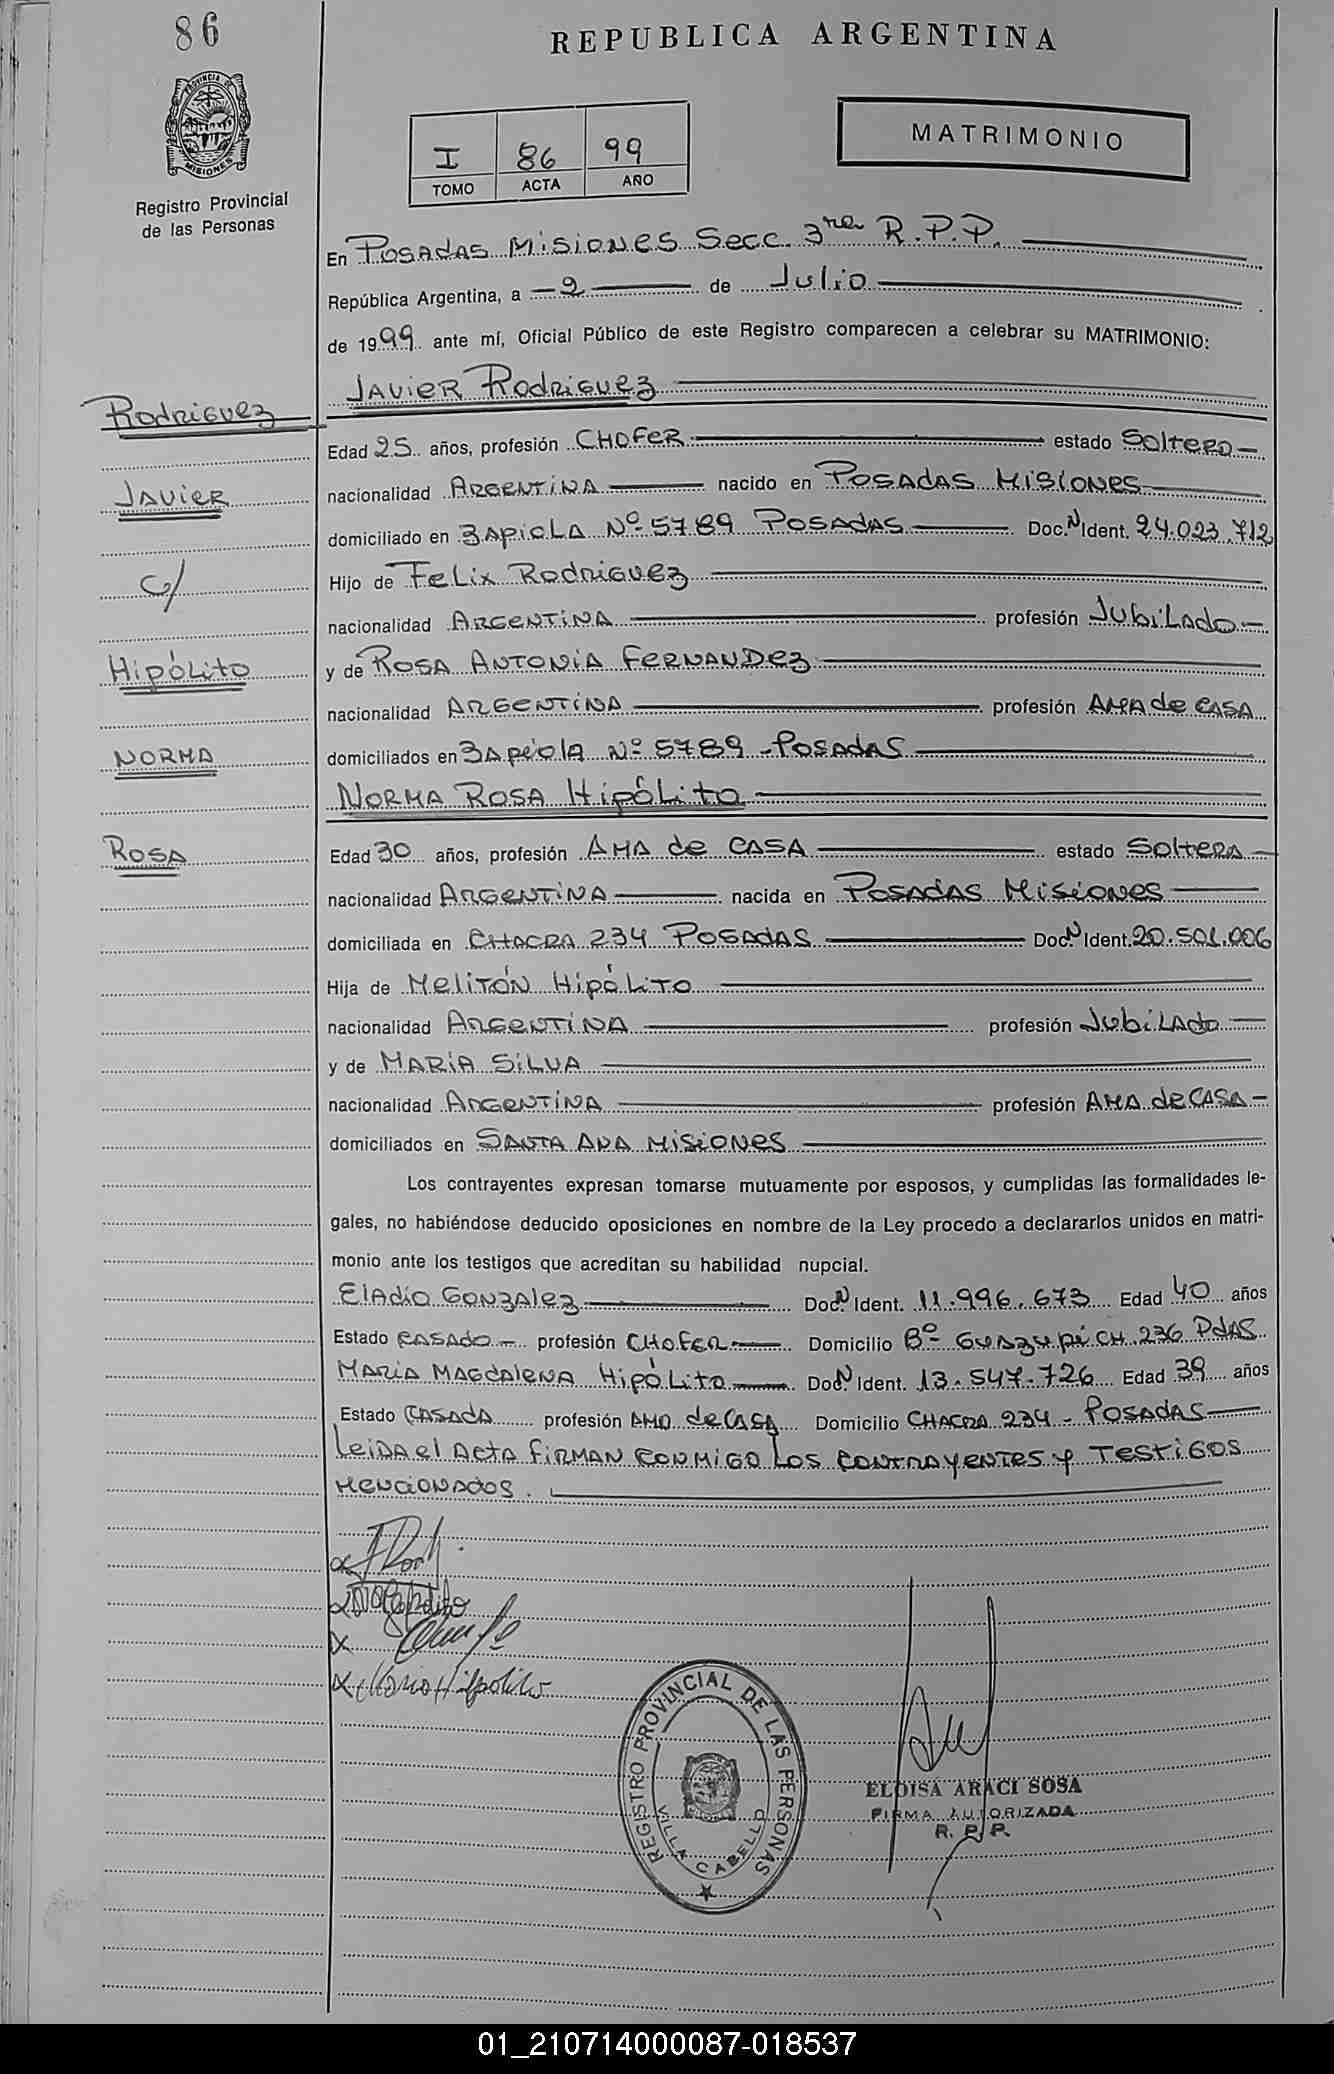 86
REPUBLICA ARGENTINA
PROVINCIA DE
MISIONES
Registro Provincial
de las Personas
I 86 99
TOMO ACTA AÑO
MATRIMONIO
En POSADAS MISIONES Secc. 3ra R.P.P.
República Argentina, a 2 de Julio
de 1999 ante mí, Oficial Público de este Registro comparecen a celebrar su MATRIMONIO:
JAVIER RODRIGUEZ
Rodriguez
Edad 25 años, profesión CHOFER estado Soltero
JAVIER
nacionalidad ARGENTINA nacido en POSADAS MISIONES
domiciliado en ZAPIOLA Nº 5789 POSADAS Doc. N Ident. 24.023.712
c/
Hijo de FELIX RODRIGUEZ
nacionalidad ARGENTINA profesión JUBILADO
HIPÓLITO
y de ROSA ANTONIA FERNANDEZ
nacionalidad ARGENTINA profesión AMA de CASA
NORMA
domiciliados en ZAPIOLA Nº 5789 - POSADAS
NORMA ROSA HIPÓLITO
ROSA
Edad 30 años, profesión AMA de CASA estado SOLTERA
nacionalidad ARGENTINA nacida en POSADAS MISIONES
domiciliada en CHACRA 234 POSADAS Doc. N Ident. 20.501.006
Hija de MELITÓN HIPÓLITO
nacionalidad ARGENTINA profesión JUBILADO
y de MARIA SILVA
nacionalidad ARGENTINA profesión AMA de CASA
domiciliados en SANTA ANA MISIONES
Los contrayentes expresan tomarse mutuamente por esposos, y cumplidas las formalidades le-
gales, no habiéndose deducido oposiciones en nombre de la Ley procedo a declararlos unidos en matri-
monio ante los testigos que acreditan su habilidad nupcial.
ELADIO GONZALEZ Doc. N Ident. 11.996.673 Edad 40 años
Estado CASADO profesión CHOFER Domicilio Bº GUAZUPI CH. 236 PDAS
MARIA MAGDALENA HIPÓLITO Doc. N Ident. 13.547.726 Edad 39 años
Estado CASADA profesión AMA de CASA Domicilio CHACRA 234 - POSADAS
LEIDA el ACTA FIRMAN CONMIGO LOS CONTRAYENTES y TESTIGOS
MENCIONADOS.
x
x
x
x Maria Hipolito
REGISTRO PROVINCIAL DE LAS PERSONAS
VILLA CABELLO
ELOISA ARACI SOSA
FIRMA AUTORIZADA
R. P. P.
01_210714000087-018537